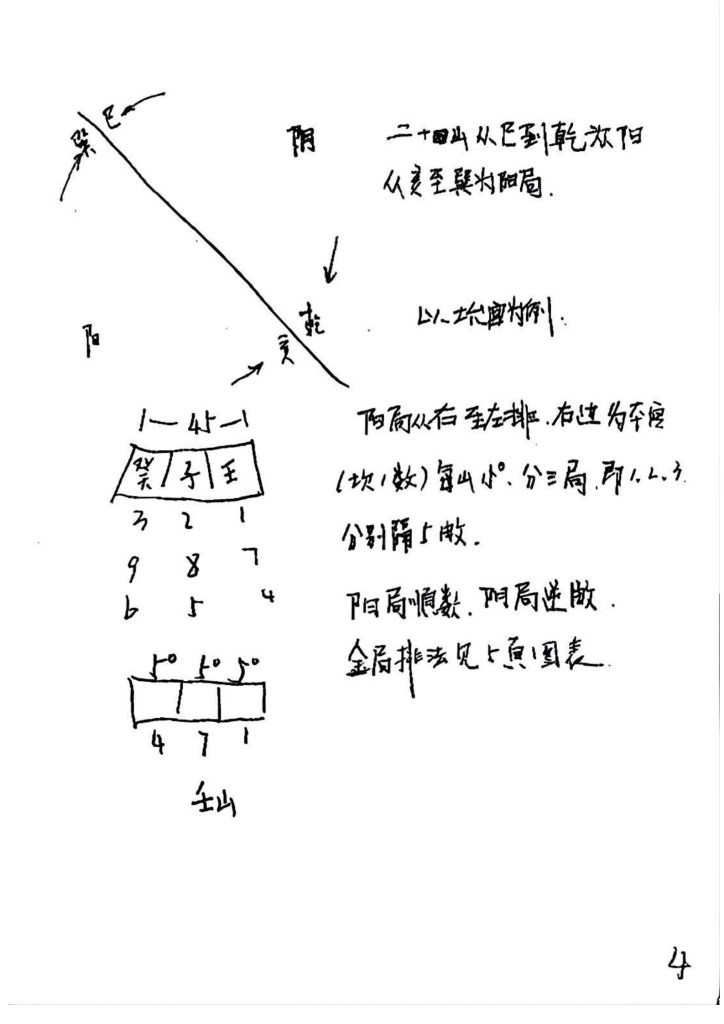 巳
巽
阴
二十四山从巳到乾为阳
从亥至巽为阳局.
乾
亥
阳
以坎宫为例.
1—45—1
癸 子 壬
3 2 1
9 8 7
6 5 4
阳局从右至左排.右边为本宫
(坎1数)每山15°.分三局.即1.2.3.
分别隔5数.
阳局順数.阴局逆数.
全局排法见5頁图表.
5° 5° 5°
4 7 1
壬山
4